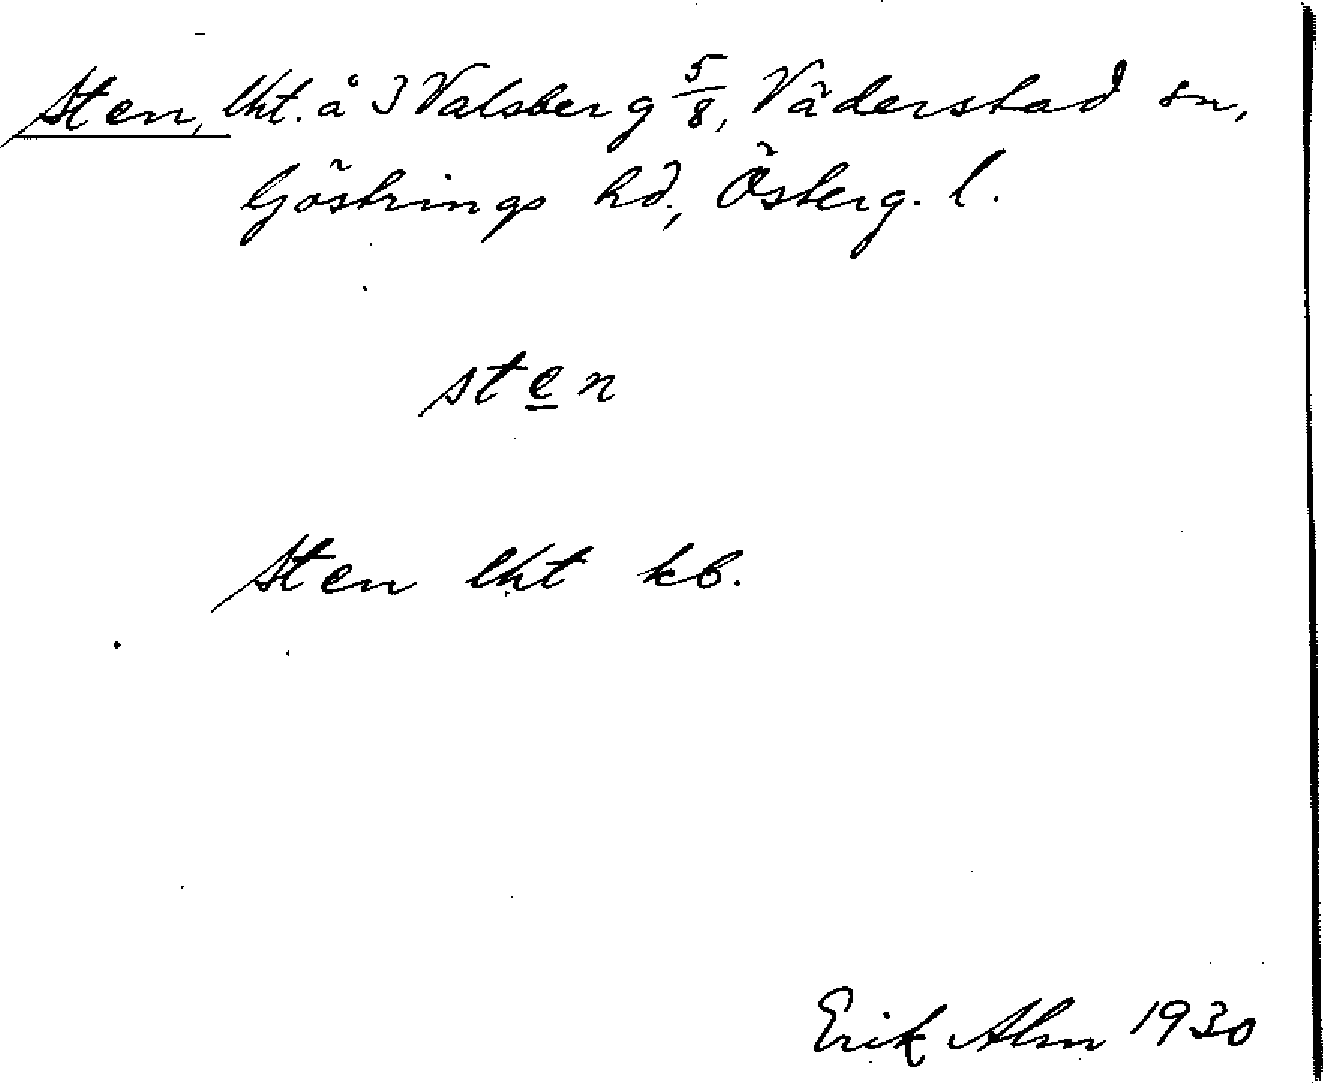 Sten, lht. å 3 Valsberg 5/8, Väderstad sn,
Göstrings hd., Österg. l.
sten
Sten lht kb.
Erik Alm 1930